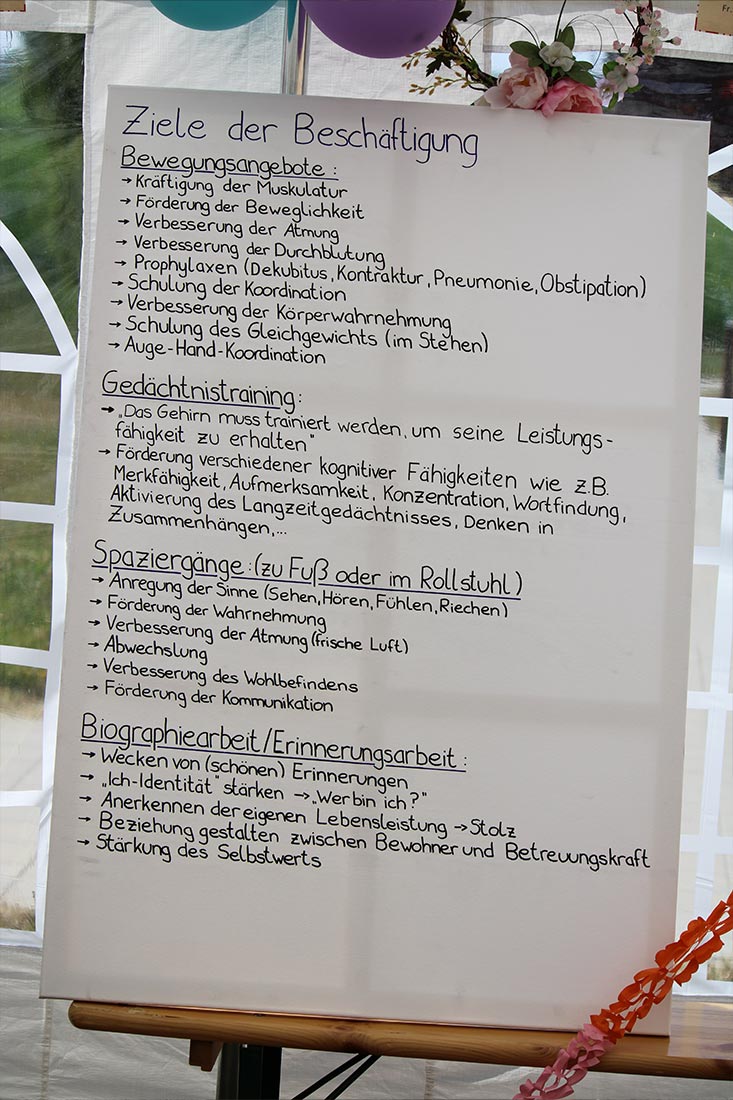 Ziele der Beschäftigung
Bewegungsangebote:
→ Kräftigung der Muskulatur
→ Förderung der Beweglichkeit
→ Verbesserung der Atmung
→ Verbesserung der Durchblutung
→ Prophylaxen (Dekubitus, Kontraktur, Pneumonie, Obstipation)
→ Schulung der Koordination
→ Verbesserung der Körperwahrnehmung
→ Schulung des Gleichgewichts (im Stehen)
→ Auge-Hand-Koordination
Gedächtnistraining:
→ „Das Gehirn muss trainiert werden, um seine Leistungs-
fähigkeit zu erhalten"
→ Förderung verschiedener kognitiver Fähigkeiten wie z.B.
Merkfähigkeit, Aufmerksamkeit, Konzentration, Wortfindung,
Aktivierung des Langzeitgedächtnisses, Denken in
Zusammenhängen,...
Spaziergänge: (zu Fuß oder im Rollstuhl)
→ Anregung der Sinne (Sehen, Hören, Fühlen, Riechen)
→ Förderung der Wahrnehmung
→ Verbesserung der Atmung (frische Luft)
→ Abwechslung
→ Verbesserung des Wohlbefindens
→ Förderung der Kommunikation
Biographiearbeit/Erinnerungsarbeit:
→ Wecken von (schönen) Erinnerungen
→ „Ich-Identität" stärken → „Wer bin ich?"
→ Anerkennen der eigenen Lebensleistung → Stolz
→ Beziehung gestalten zwischen Bewohner und Betreuungskraft
→ Stärkung des Selbstwerts